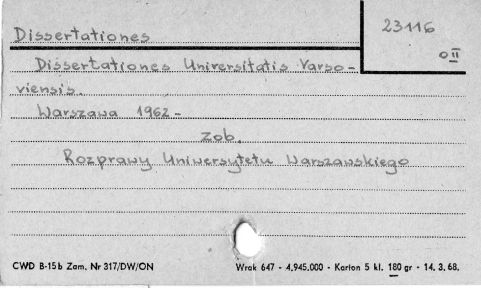 Dissertationes
23116
O II
Dissertationes Universitatis Varso-
viensis.
Warszawa 1962-
zob.
Rozprawy Uniwersytetu Warszawskiego
CWD B-15b Zam. Nr 317/DW/ON
Wrak 647 - 4.945.000 - Karton 5 kl. 180 gr - 14. 3. 68.